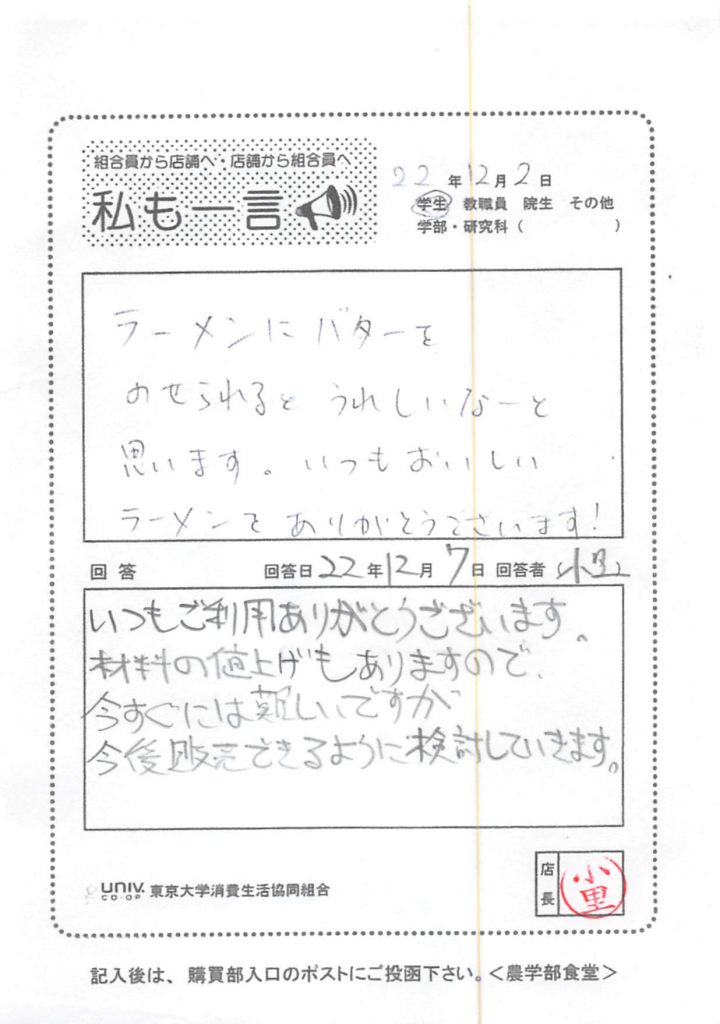 組合員から店舗へ・店舗から組合員へ
私も一言
22年12月2日
学生 教職員 院生 その他
学部・研究科（ ）
ラーメンにバターを
のせられるとうれしいなーと
思います。いつもおいしい
ラーメンをありがとうございます!
回答 回答日22年12月7日 回答者 小里
いつもご利用ありがとうございます。
材料の値上げもありますので、
今すぐには難しいですが
今後販売できるように検討していきます。
UNIV. CO-OP 東京大学消費生活協同組合
店長 小里
記入後は、購買部入口のポストにご投函下さい。＜農学部食堂＞